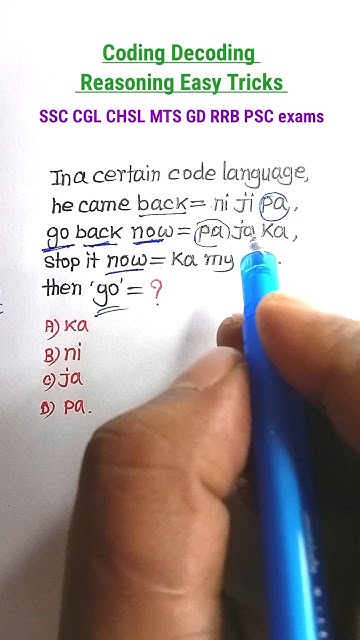 Coding Decoding
Reasoning Easy Tricks
SSC CGL CHSL MTS GD RRB PSC exams
In a certain code language,
he came back = ni ji pa,
go back now = pa ja ka,
stop it now = ka my .
then 'go' = ?
A) ka
B) ni
C) ja
D) pa.